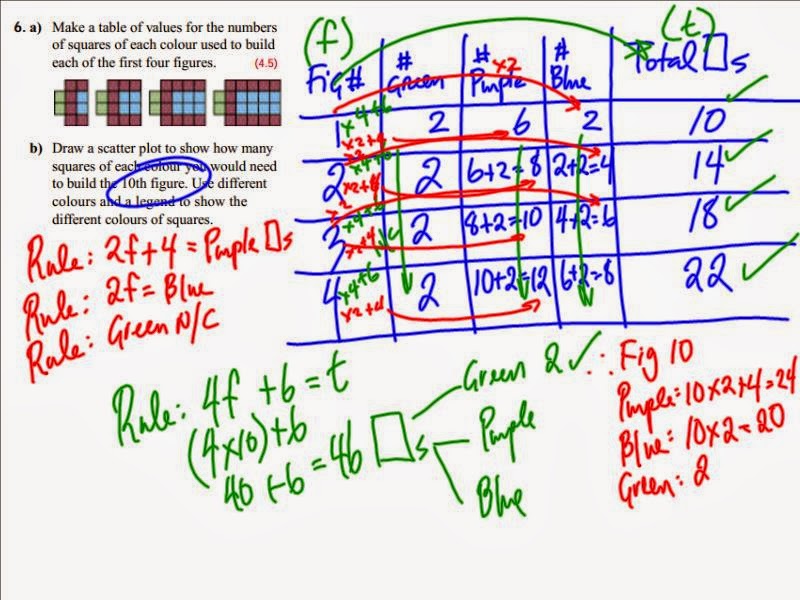 6. a) Make a table of values for the numbers
of squares of each colour used to build
each of the first four figures. (4.5)
b) Draw a scatter plot to show how many
squares of each colour you would need
to build the 10th figure. Use different
colours and a legend to show the
different colours of squares.
(f) (t)
Fig# # Green # Purple x2 # Blue Total □s
1 x4+6 x2+4 x2 2 6 2 10
2 x4+6 x2+4 x2 2 6+2=8 2+2=4 14
3 x4+6 x2+4 2 8+2=10 4+2=6 18
4 x4+6 x2+4 2 10+2=12 6+2=8 22
Rule: 2f+4 = Purple □s
Rule: 2f = Blue
Rule: Green N/C
Rule: 4f +6 = t
(4x10)+6
40+6=46 □s
Green 2 ✓
Purple
Blue
∴ Fig 10
Purple=10x2+4=24
Blue: 10x2=20
Green: 2